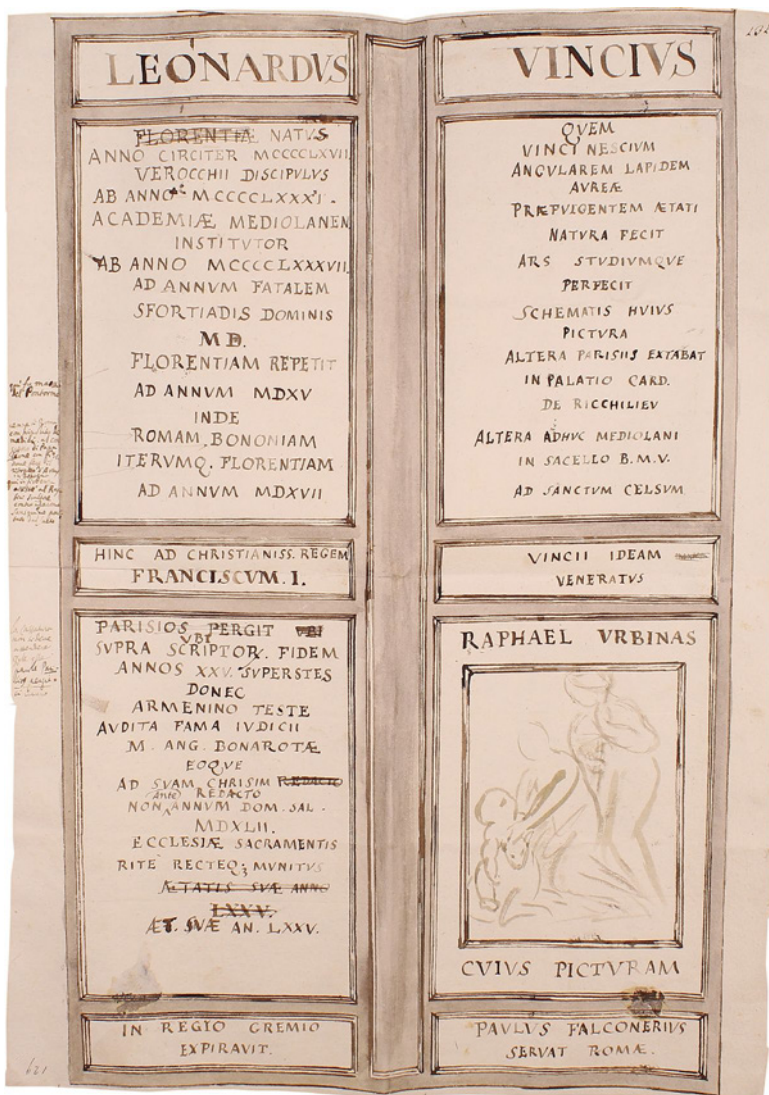 LEONARDVS
FLORENTIÆ NATVS
ANNO CIRCITER MCCCCLXVII
VEROCCHII DISCIPVLVS
AB ANNO MCCCCLXXXI.
ACADEMIÆ MEDIOLANEN
INSTITVTOR
AB ANNO MCCCCLXXXVII
AD ANNVM FATALEM
SFORTIADIS DOMINIS
MD.
FLORENTIAM REPETIT
AD ANNVM MDXV
INDE
ROMAM, BONONIAM
ITERVMQ. FLORENTIAM
AD ANNVM MDXVII
HINC AD CHRISTIANISS. REGEM
FRANCISCVM. I.
PARISIOS PERGIT VBI
VBI
SVPRA SCRIPTOR. FIDEM
ANNOS XXV. SVPERSTES
DONEC
ARMENINO TESTE
AVDITA FAMA IVDICII
M. ANG. BONAROTÆ
EOQVE
AD SVAM CHRISIM REDACTO
ante REDACTO
NON ANNVM DOM. SAL.
MDXLII.
ECCLESIÆ SACRAMENTIS
RITE RECTEQ; MVNITVS
ÆTATIS SVÆ ANNO
LXXV.
ÆT. SVÆ AN. LXXV.
IN REGIO GREMIO
EXPIRAVIT.
621
VINCIVS
QVEM
VINCI NESCIVM
ANGVLAREM LAPIDEM
AVREÆ
PRÆFVIGENTEM ÆTATI
NATVRA FECIT
ARS STVDIVMQVE
PERFECIT
SCHEMATIS HVIVS
PICTVRA
ALTERA PARISIIS EXTABAT
IN PALATIO CARD.
DE RICCHILIEV
ALTERA ADHVC MEDIOLANI
IN SACELLO B.M.V.
AD SANCTVM CELSVM
VINCII IDEAM
VENERATVS
RAPHAEL VRBINAS
CVIVS PICTVRAM
PAVLVS FALCONERIVS
SERVAT ROMÆ.